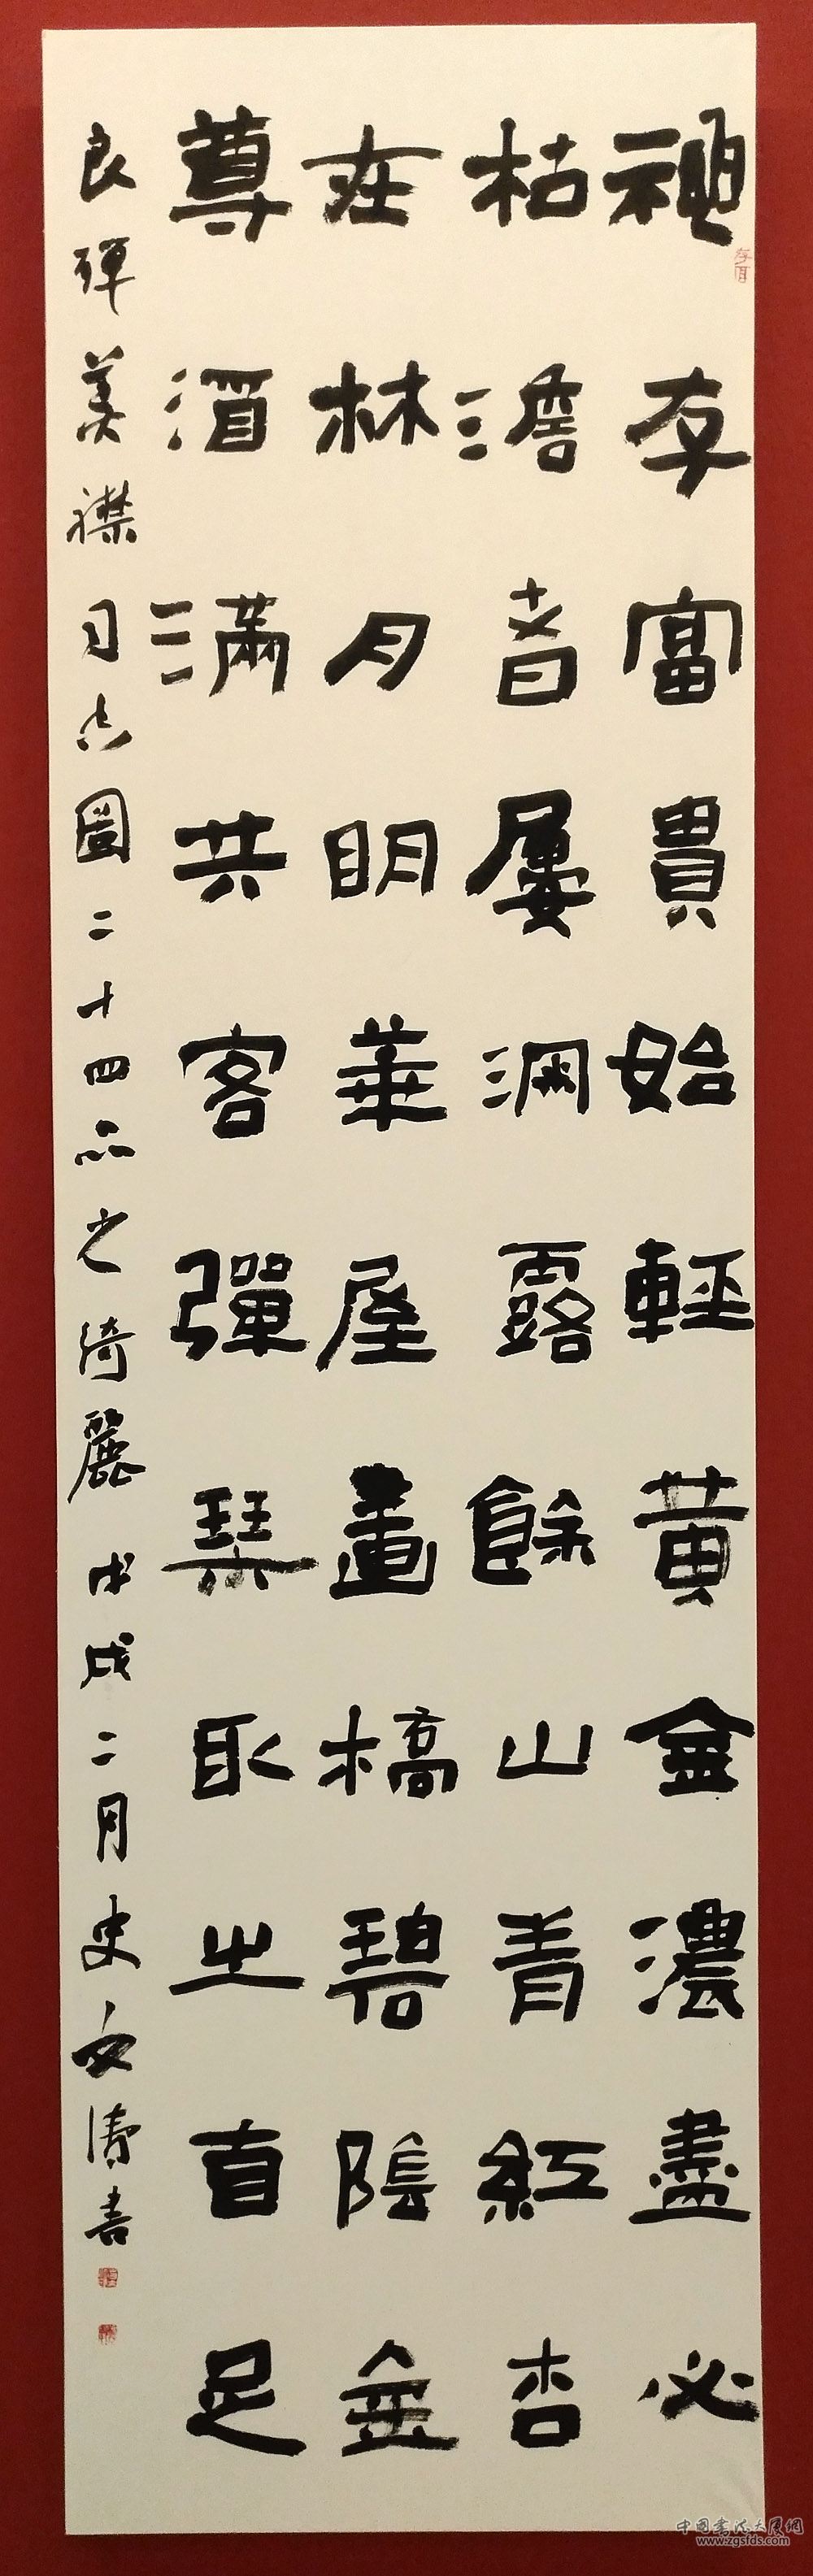 神存富貴始輕黄金濃盡必
枯澹者屢深露餘山青紅杏
在林月明華屋畫橋碧陰金
尊酒滿共客彈琹取之自足
良殫美襟司空圖二十四品之綺麗戊戌二月史文濤書
中国书法大展网
www.zgsfds.com